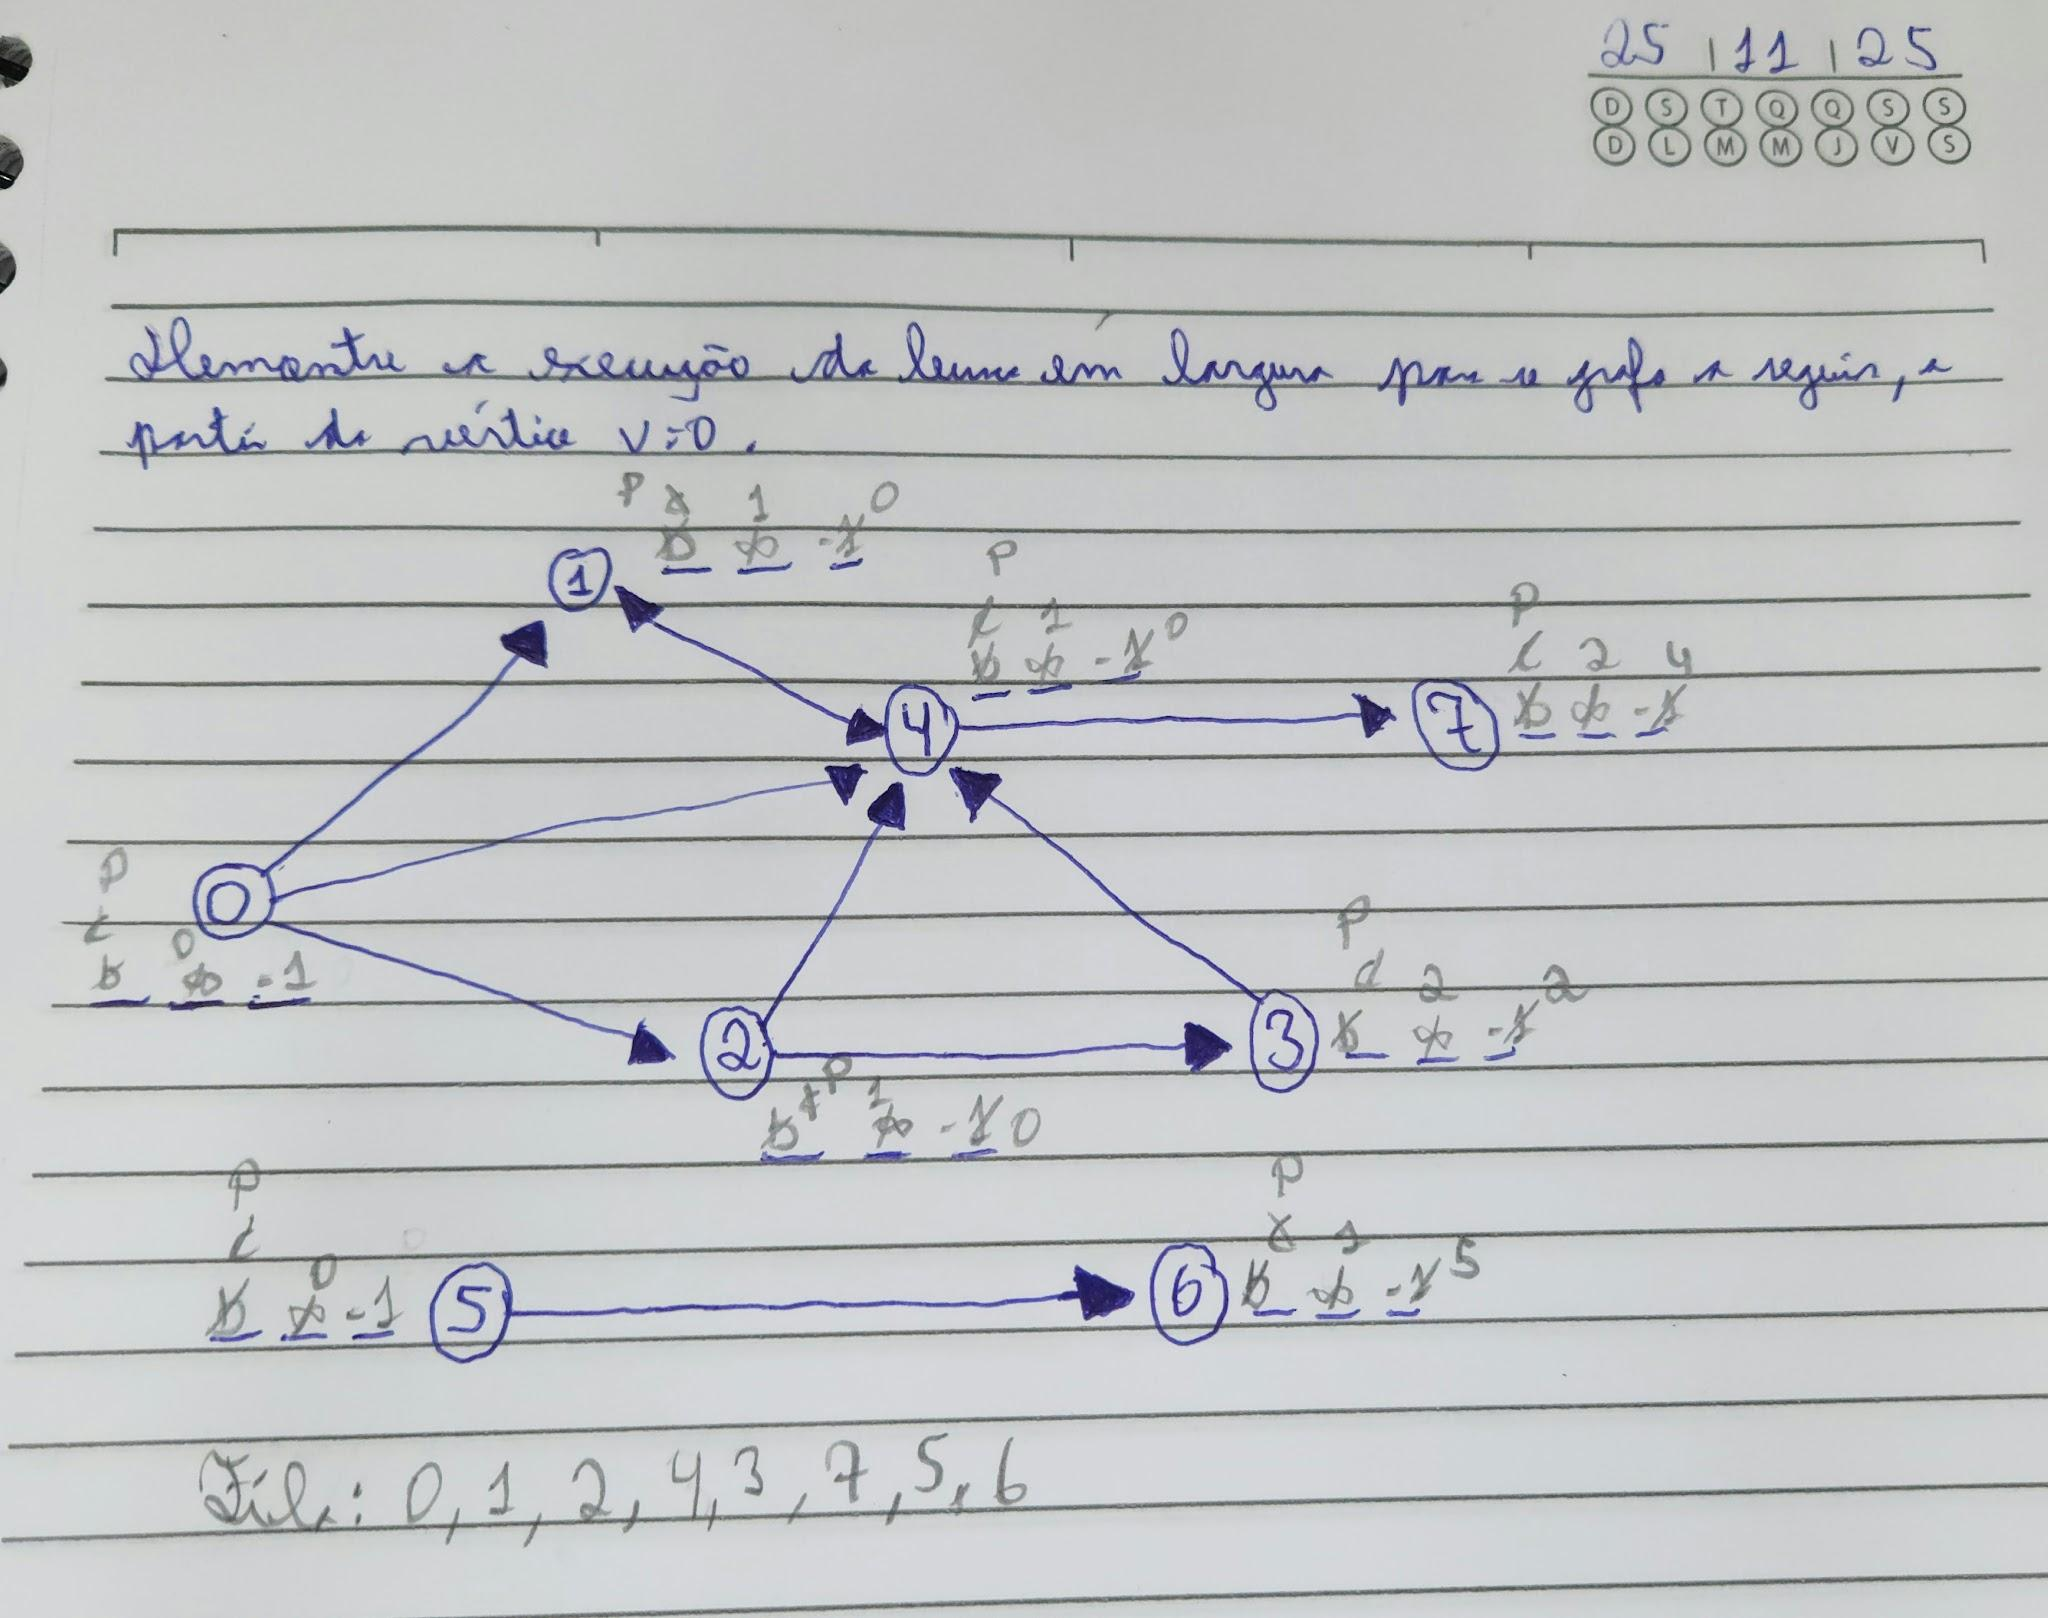 25 | 11 | 25
D S T Q Q S S
D L M M J V S
Demonstre a execução da busca em largura para o grafo a seguir, a
partir do vértice v=0.
P 1 0
b ∞ -1
1
P
c 1 0
b ∞ -1
4
P
c 2 4
b ∞ -1
7
P
c 0
b ∞ -1
0
P
c 2 2
b ∞ -1
3
2
P 1
b ∞ -1 0
P
c 0
b ∞ -1
5
P
c 1 5
b ∞ -1
6
Fila: 0, 1, 2, 4, 3, 7, 5, 6